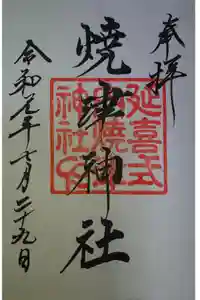 奉拝
焼津神社
延喜式
焼津
神社印
令和元年十二月二十九日